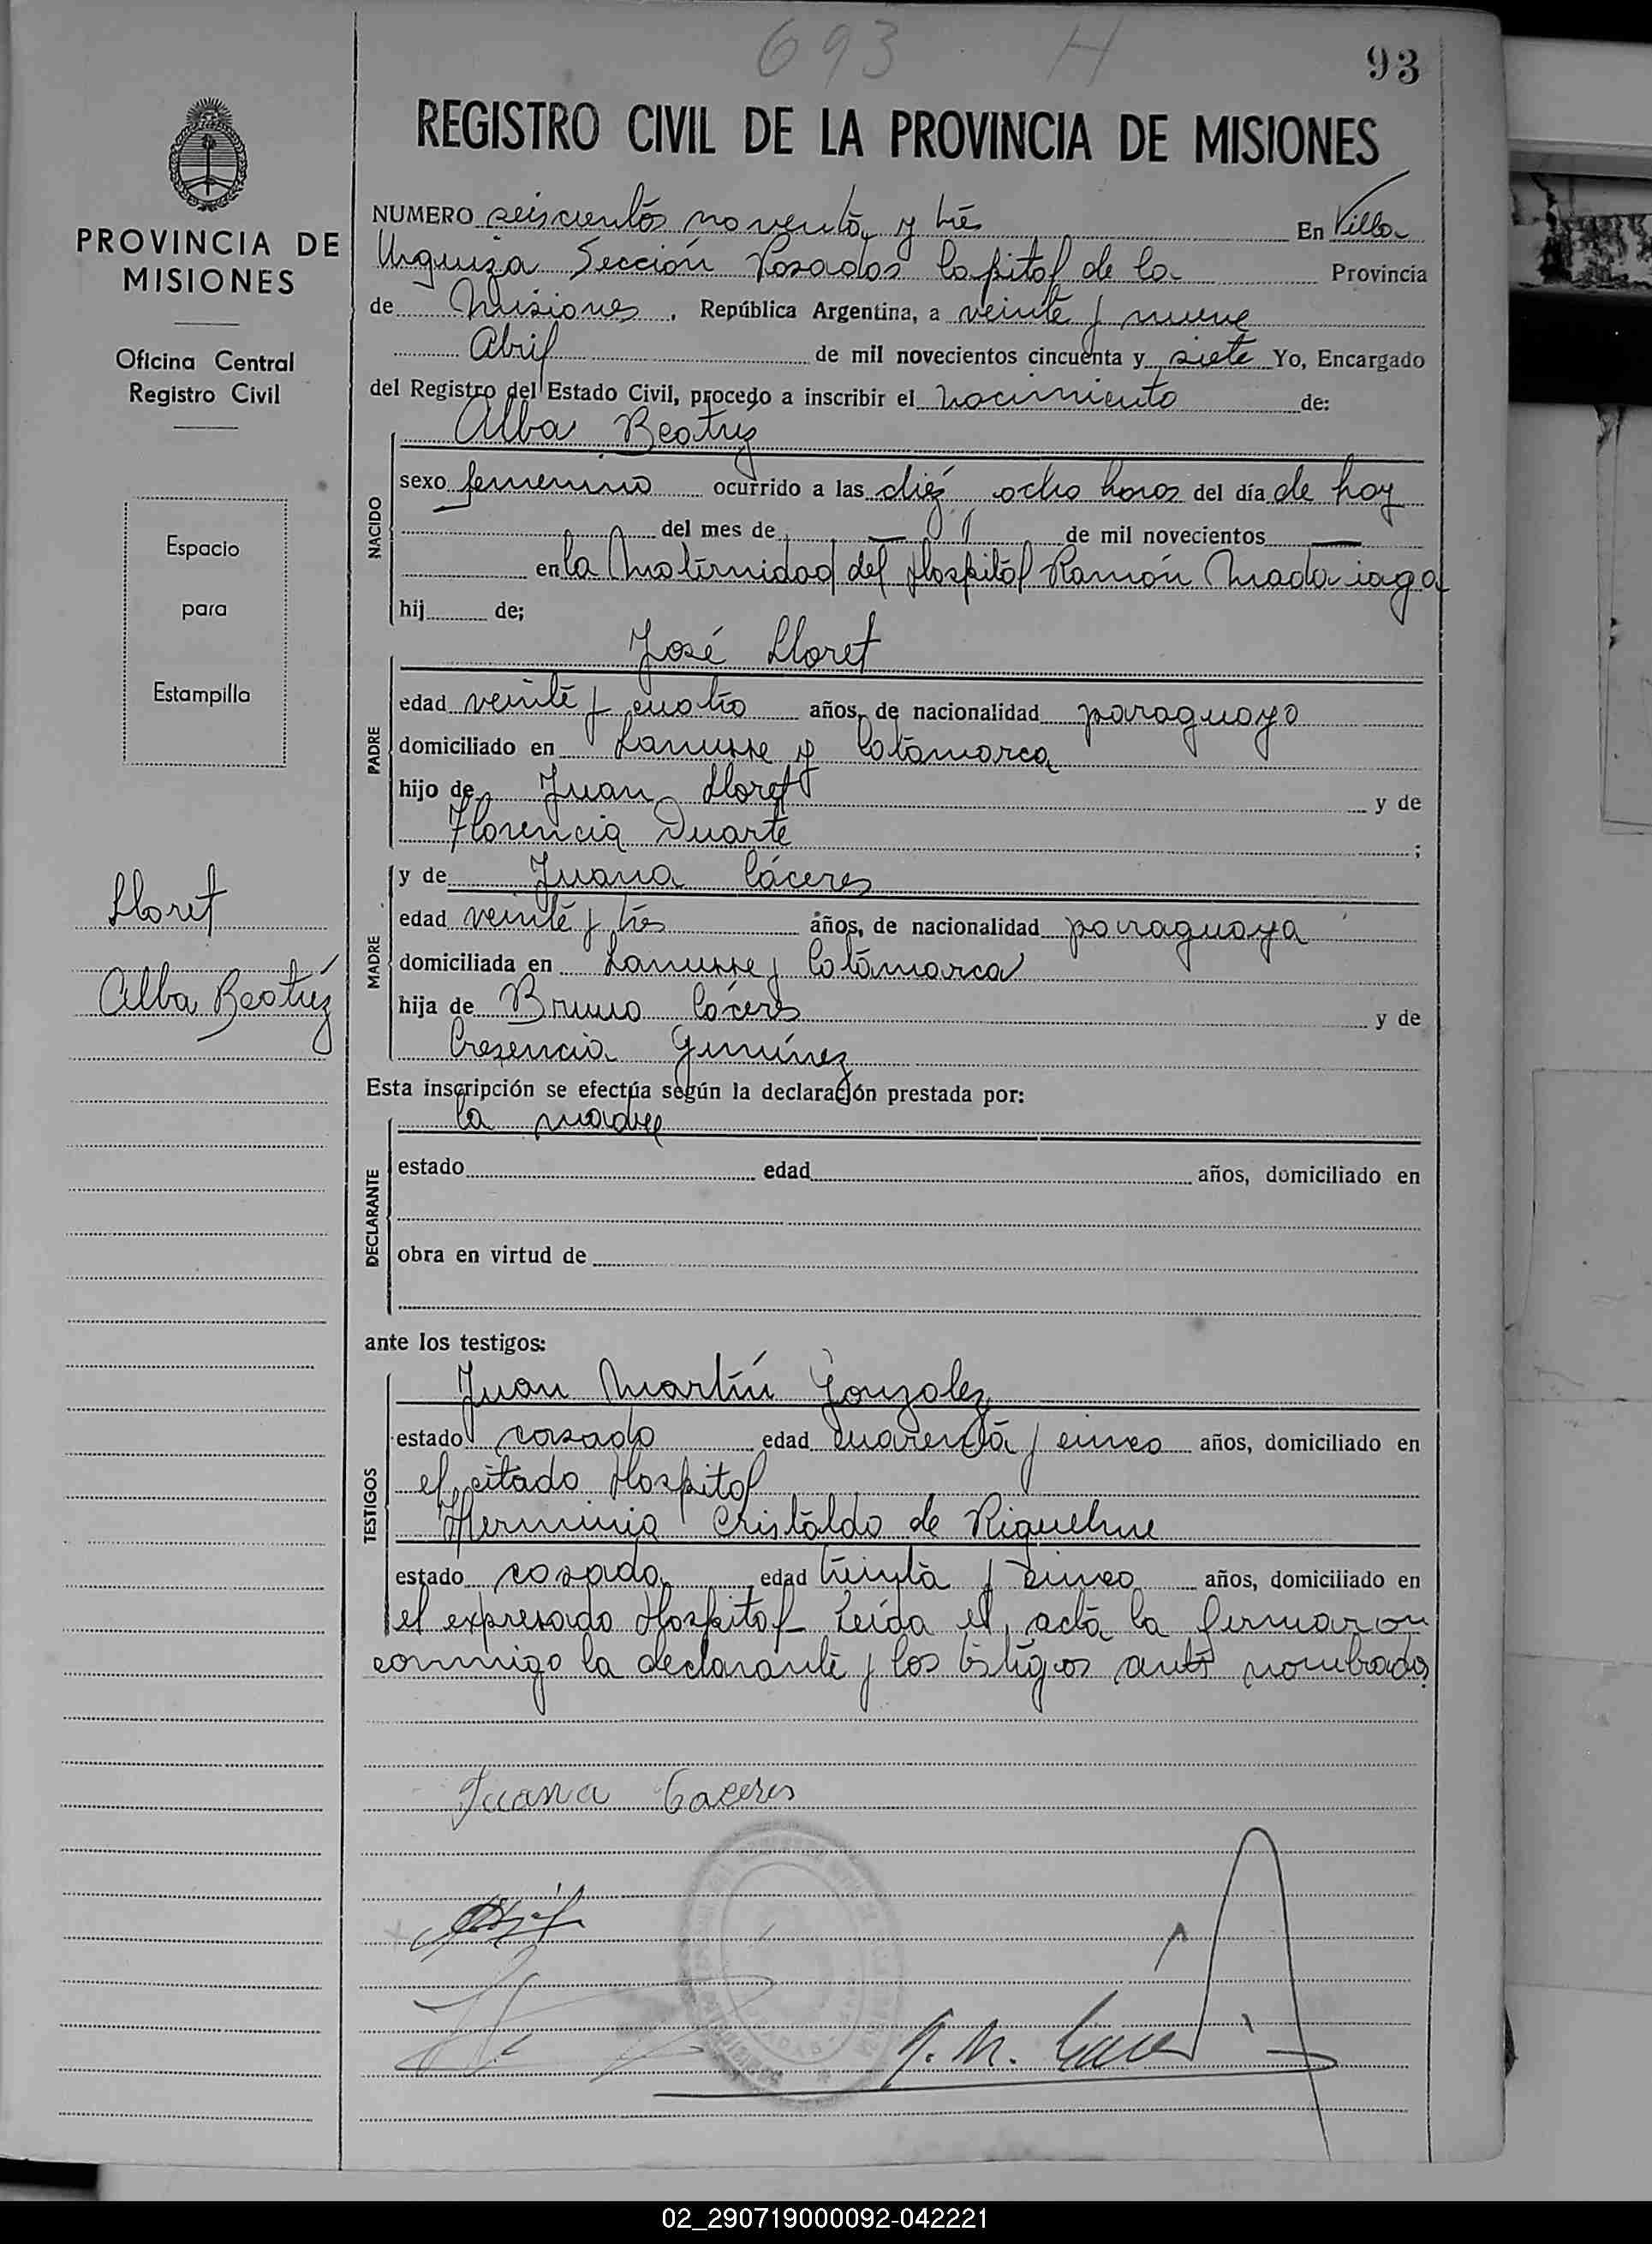 693 H
93
REGISTRO CIVIL DE LA PROVINCIA DE MISIONES
PROVINCIA DE
MISIONES
Oficina Central
Registro Civil
Espacio
para
Estampilla
Lloret
Alba Beatriz
NUMERO seiscientos noventa y tres En Villa
Urquiza Sección Posadas Capital de la Provincia
de Misiones, República Argentina, a veinte y nueve
Abril de mil novecientos cincuenta y siete Yo, Encargado
del Registro del Estado Civil, procedo a inscribir el nacimiento de:
Alba Beatriz
NACIDO
sexo femenino ocurrido a las diez ocho horas del día de hoy
del mes de — de mil novecientos —
en la Maternidad del Hospital Ramón Madariaga
hij de;
José Lloret
PADRE
edad veinte y cuatro años, de nacionalidad paraguayo
domiciliado en Lanusse y Catamarca
hijo de Juan Lloret y de
Florencia Duarte ;
y de Juana Cáceres
MADRE
edad veinte y tres años, de nacionalidad paraguaya
domiciliada en Lanusse y Catamarca
hija de Bruno Cáceres y de
Cresencia Giménez
Esta inscripción se efectúa según la declaración prestada por:
la madre
DECLARANTE
estado edad años, domiciliado en
obra en virtud de
ante los testigos:
Juan Martín Gonzalez
TESTIGOS
estado casado edad cuarenta y cinco años, domiciliado en
el citado Hospital
Herminia Cristaldo de Riquelme
estado casada edad treinta y cinco años, domiciliado en
el expresado Hospital Leída el acta la firmaron
conmigo la declarante y los testigos ante nombrados
Juana Caceres
02_290719000092-042221